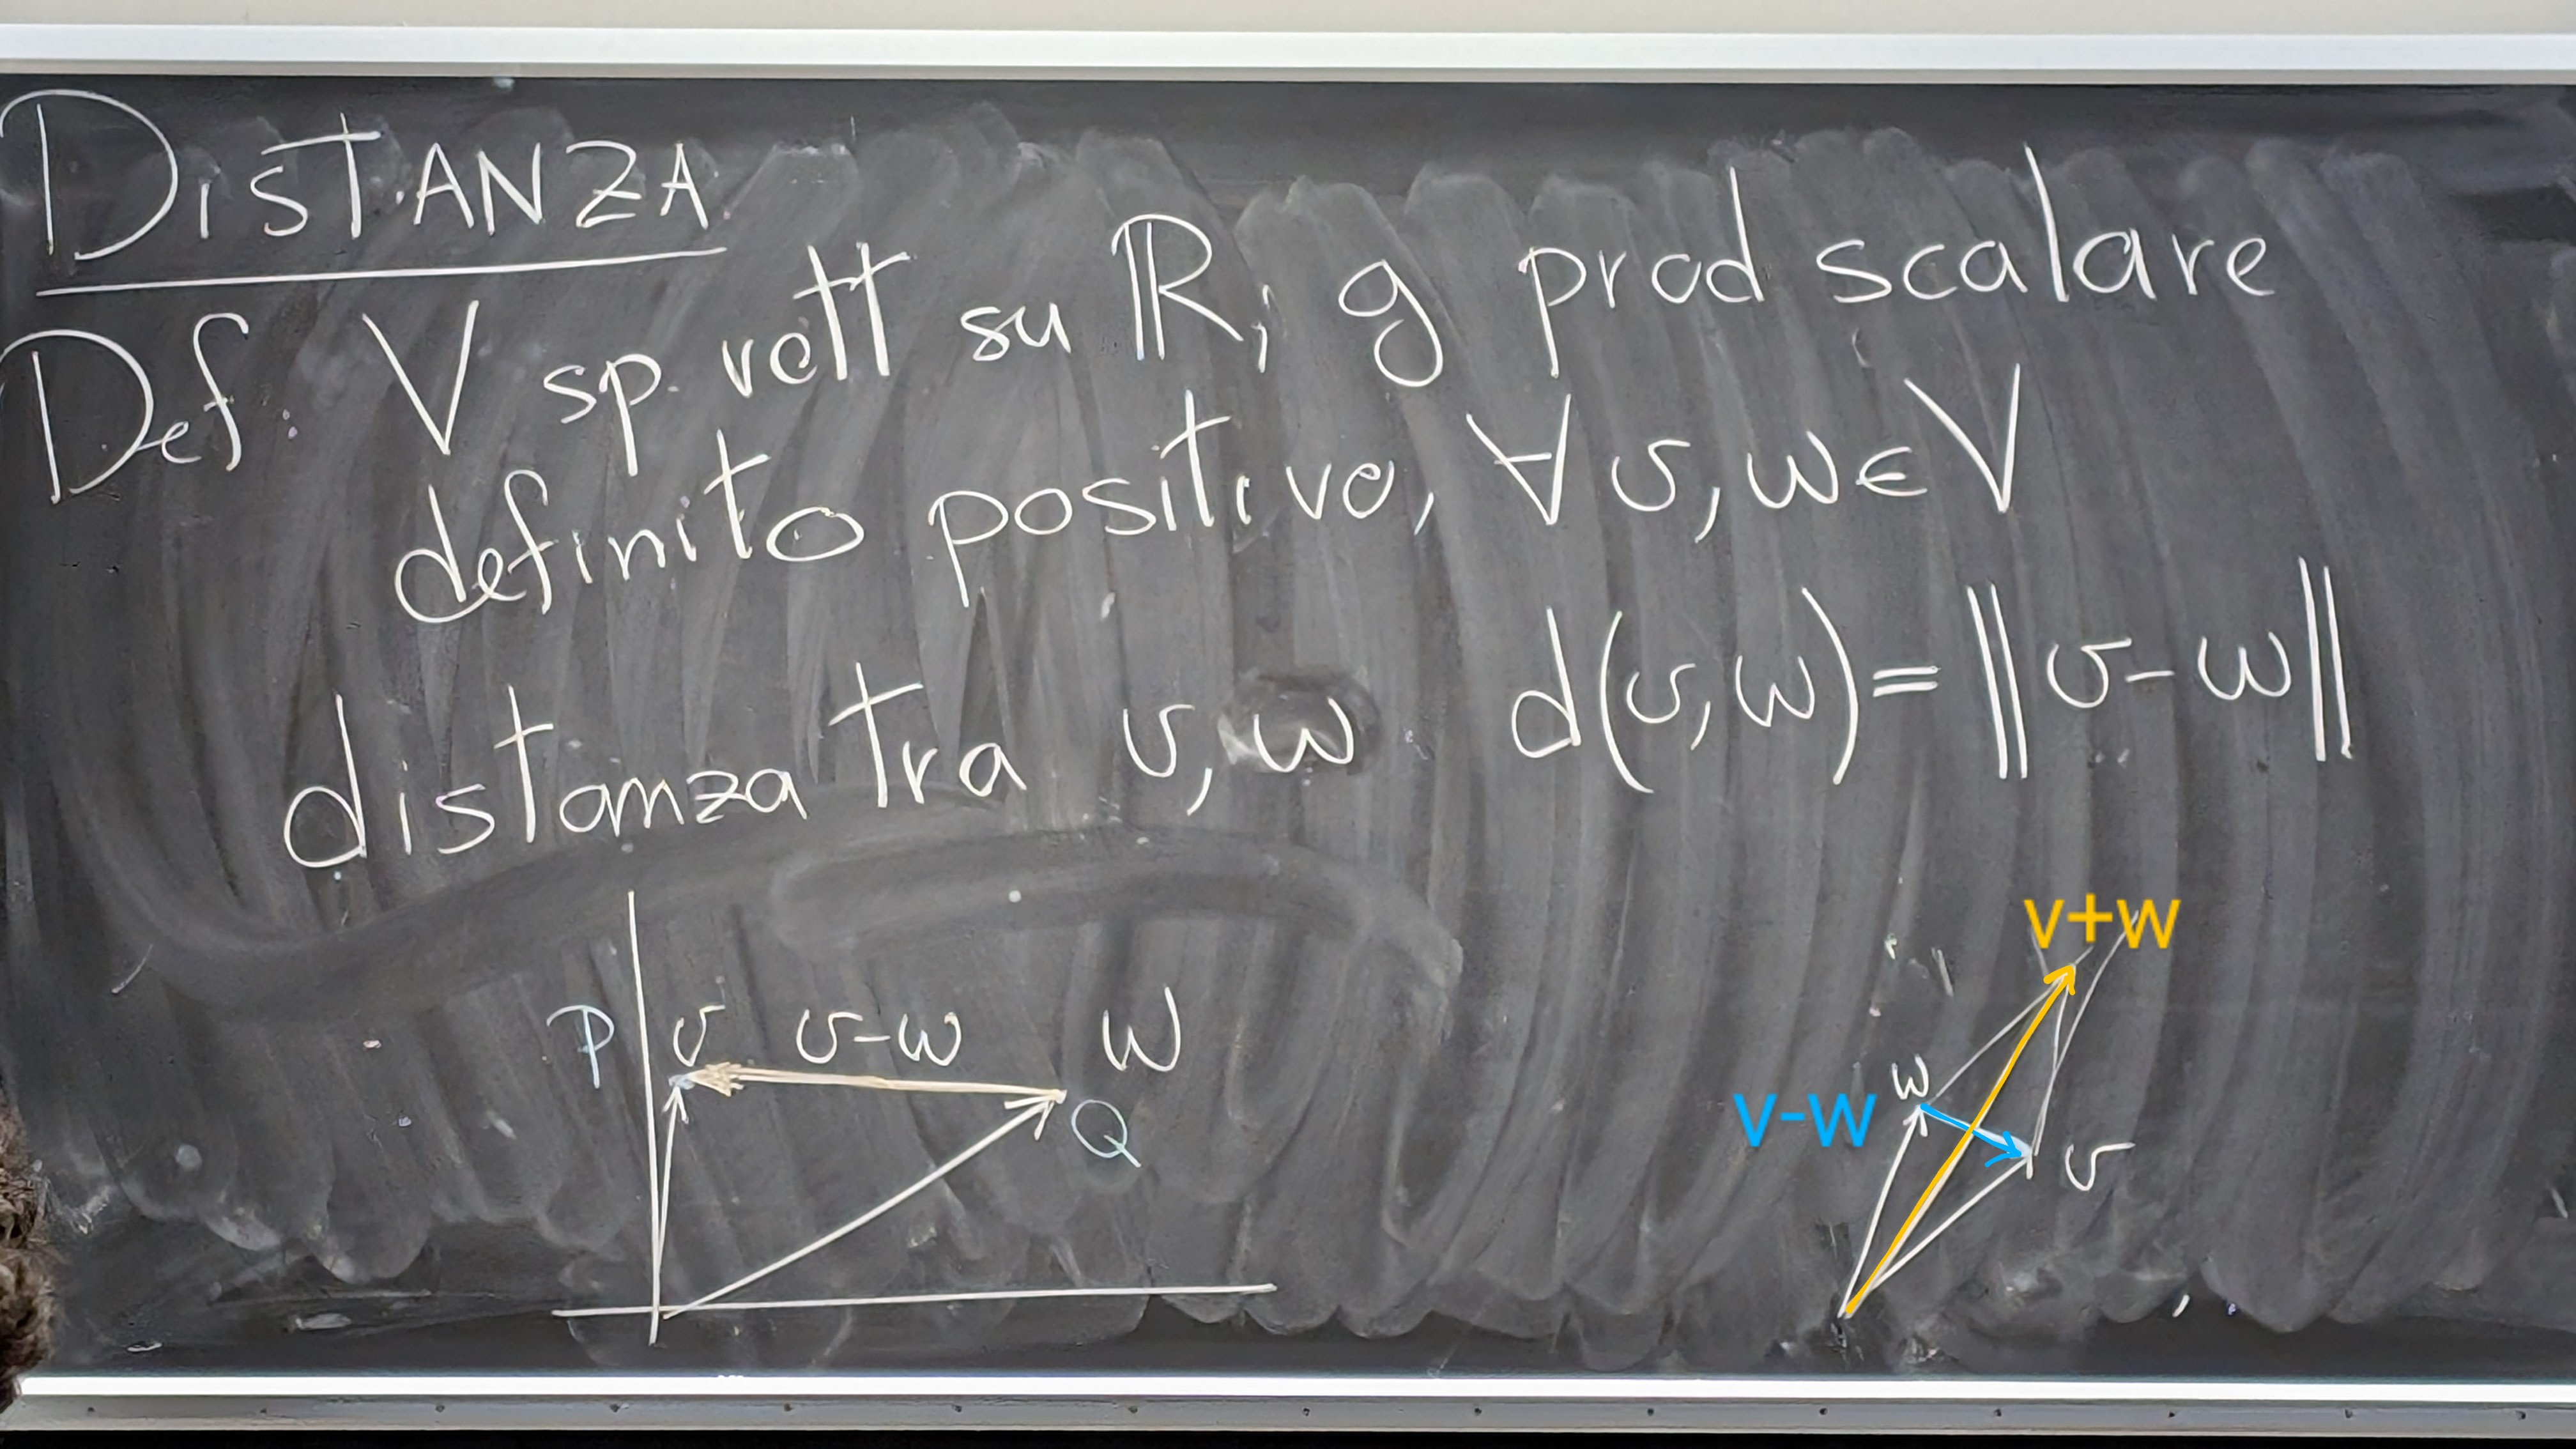 DISTANZA
Def: V sp. vett su ℝ, g prod scalare
definito positivo, ∀ v, w ∈ V
distanza tra v, w d(v,w)= ||v-w||
P v v-w w
Q
v+w
w
v-w
v